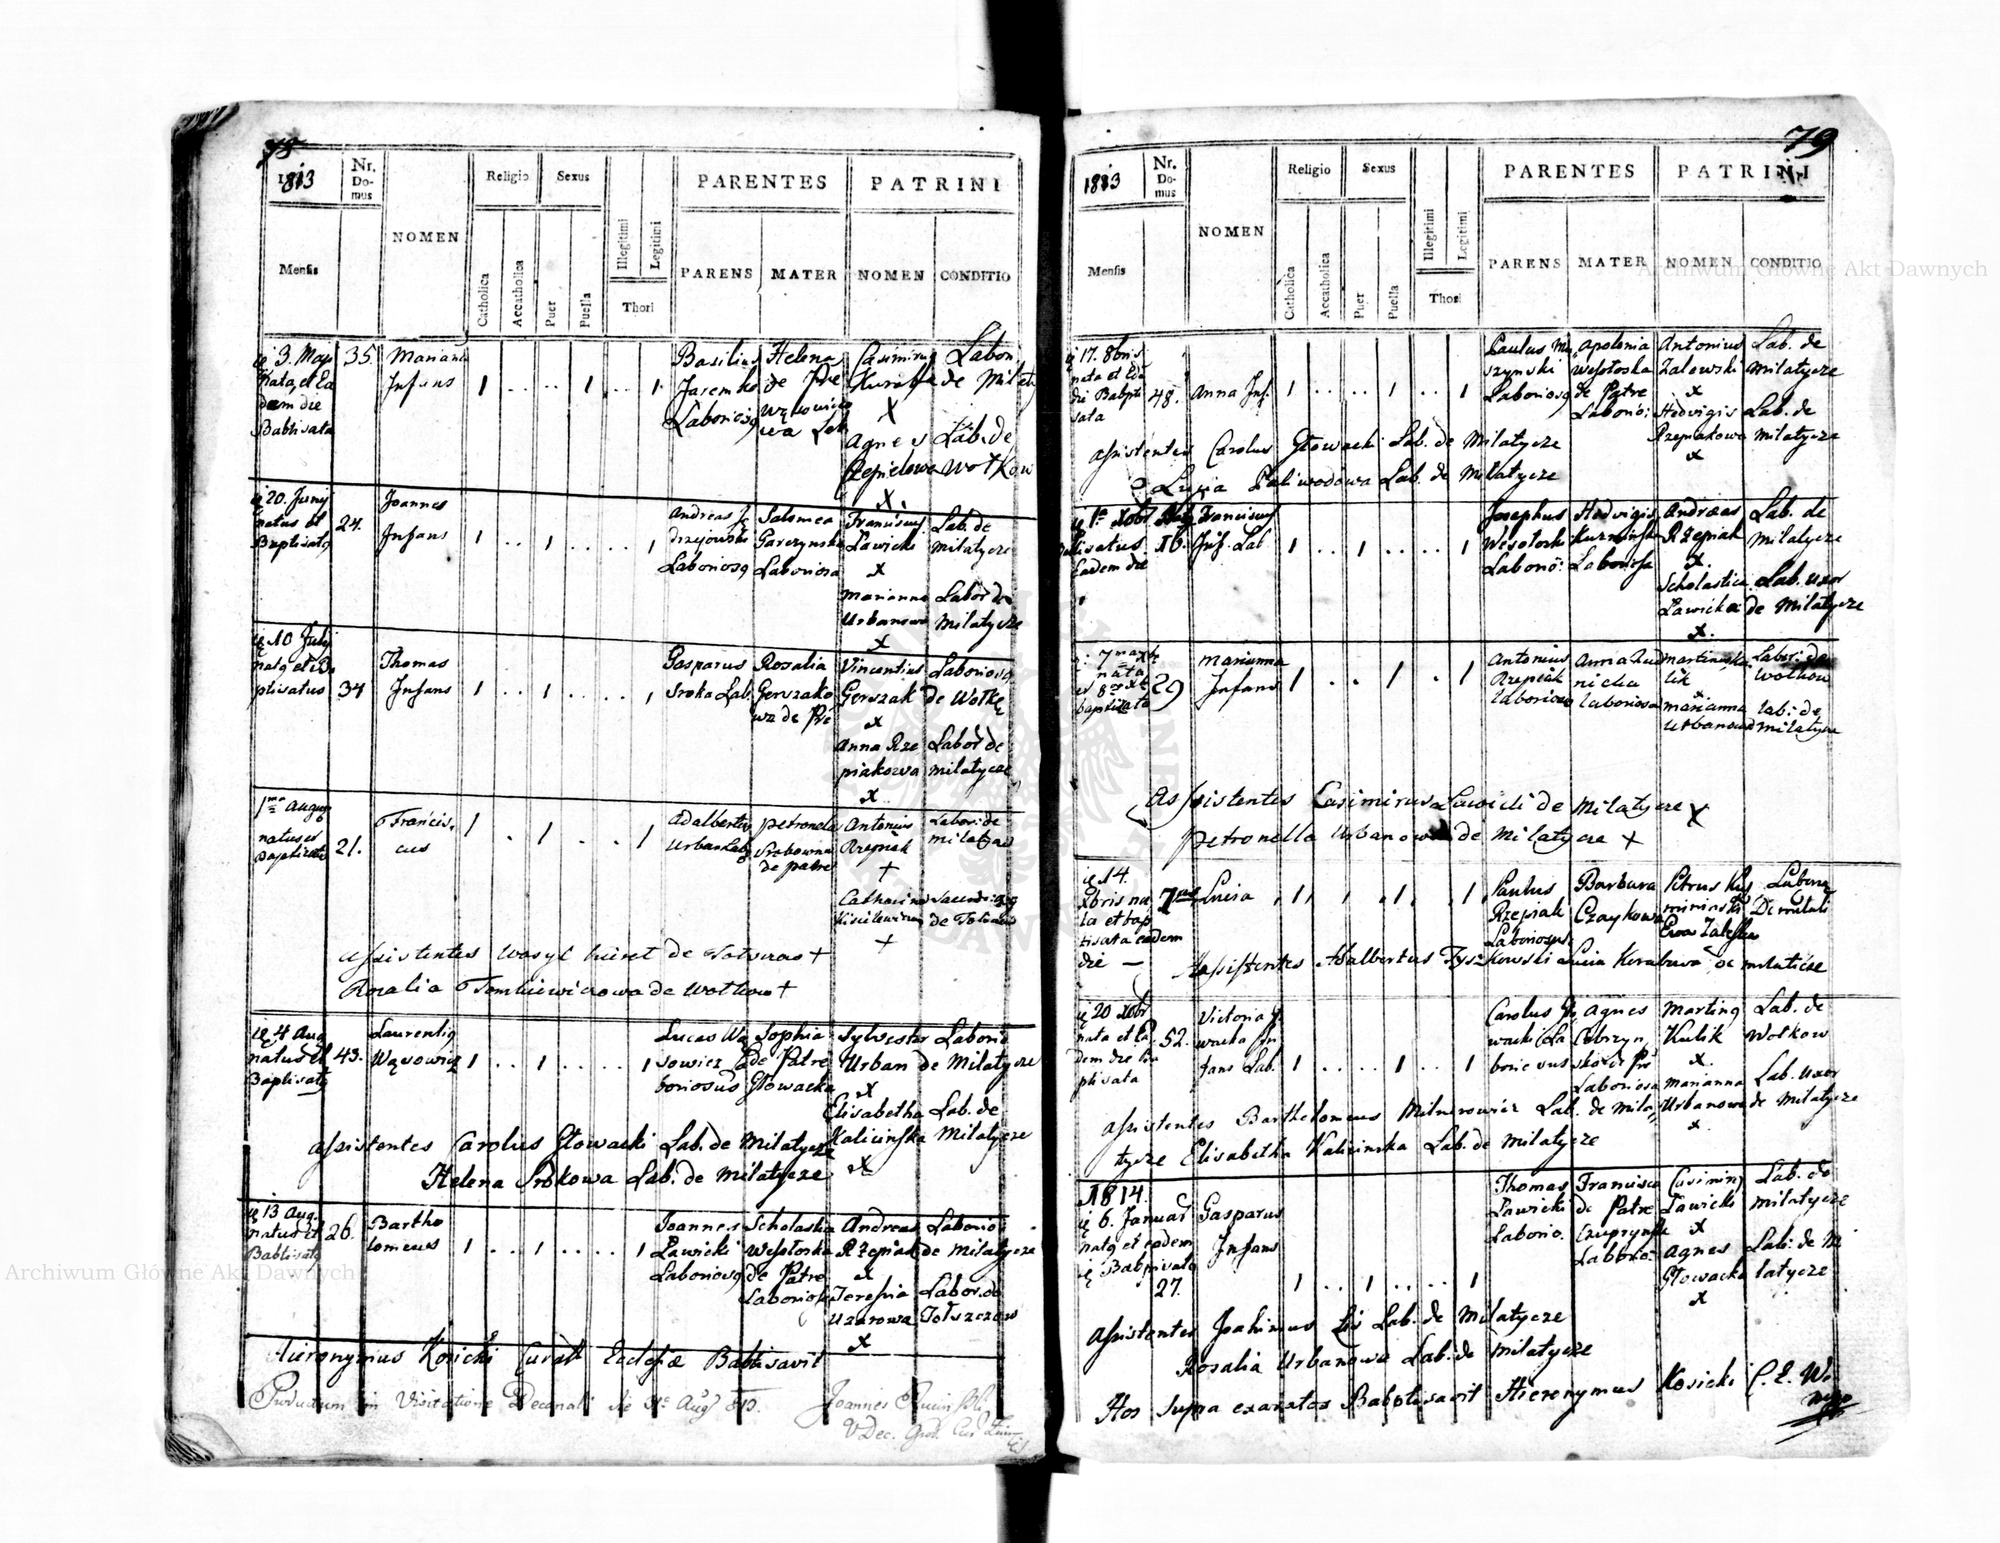 78
1813
Nr. Domus
NOMEN
Religio
Sexus
Illegitimi
Legitimi
PARENTES
PATRINI
Mensis
Catholica
Accatholica
Puer
Puella
Thori
PARENS
MATER
NOMEN
CONDITIO
3. Maji
Nata et Ea
dem die
Babtisata
35.
Mariana
Infans
Basilius
Jaremko
Laboriosq
Helena
de Pre
Casimirus
Kuraba
x
Agnes
Rzepielowa
x
Labori
de Milaty
Lab. de
Wolkow
20. Junij
natus et
Baptisatq
24.
Joannes
Infans
Andreas Ję
drzejowski
Laboriosq
Salomea
Garczynska
Laboriosa
Franciscus
Lawicki
x
Marianna
Urbanowa
x
Lab. de
Milatycze
Labor de
Milatycze
10 Julij
natq et Ba
ptisatus
34
Thomas
Infans
Gasparus
Sroka Lab.
Rosalia
Gerszako
wa de Pre
Vincentius
Gerszak
x
Anna Rze
piakowa
x
Laboriosq
de Wolko
Labor de
Milatycze
1ma Augus
natus et
Baptisatus
21.
Francis.
cus
Adalbertus
Urban Lab
Petronela
Srokowna
de patre
Antonius
Rzepiak
+
Catharina
Kisilewicowa
+
Labor: de
Milatycze
de Tolszczow
Assistentes Wasyl huret de Tolszczow +
Rosalia Tomkiewiczowa de Wolkow +
4 Aug
natus et
Baptisatq
43.
Laurentiq
Wąsowicz
Lucas Wą
sowicz La
boriosus
Sophia
de Patre
Głowacka
Sylvester
Urban
x
Elisabetha
Kalicinska
x
Laborio
de Milatycze
Lab. de
Milatycze
Assistentes Carolus Głowacki Lab. de Milatycze
Helena Srokowa Lab. de Milatycze
13 Aug.
natus et
Babtisatq
26.
Bartho
lomeus
Joannes
Lawicki
Laboriosq
Scholastica
Wesołoska
de Patre
Laboriosa
Andreas
Rzepiak
x
Teresia
Uzarowa
x
Laborio
de Milatycze
Labor. de
Tolszczow
Hieronymus Kosicki Curatt Ecclesiæ Babtisavit
Productum in Visitatione Decanali die Aug 813.
Joannes
V Dec.
79
1813
Nr. Domus
NOMEN
Religio
Sexus
Illegitimi
Legitimi
PARENTES
PATRINI
Mensis
Catholica
Accatholica
Puer
Puella
Thori
PARENS
MATER
NOMEN
CONDITIO
17. 8bris
nata et Ea
die Babpti
sata
48.
Anna Inf.
Paulus Mu
szynski
Laboriosq
Apolonia
Wesołoska
de Patre
Laborio:
Antonius
Zalewski
x
Hedvigis
Rzepiakowa
x
Lab. de
Milatycze
Lab. de
Milatycze
Assistentes Carolus Głowacki Lab. de Milatycze
Lucia Paliwodowa Lab. de Milatycze
1a Xobr
Eadem die
16.
Franciscus
Inf. Lab
Josephus
Wesołoski
Laborio:
Hedvigis
Kuzminska
Laboriosa
Andreas
Rzepiak
x.
Scholastica
Lawicka
x.
Lab. de
Milatycze
Lab. uxor
de Milatycze
nata
baptisata
29
Marianna
Infans
Antonius
Rzepiak
laboriosus
Anna Kud
nicka
laboriosa
Martinus Ku
lik
x
Marianna
Urbanowa
Labor: de
Wolkow
lab: de
Milatycze
Assistentes Casimirus Lawicki de Milatycze x
Petronella Urbanowa de Milatycze +
14.
Xbris na
ta et bap
tisata eadem
die —
7ms
Lucia
Paulus
Rzepiak
Laboriosus
Barbara
Czaykowa
Petrus
Ewa Zaleska
Assistentes Adalbertus Tysz kowski Lucia Korabowa de Milaticze
20 Xobr
nata et Ea
dem die Ba
ptisata
52.
Victoria G
wacka In
fans Lab.
Carolus G
wacki La
borie vus
Agnes
Cobrzyn
ska de Pre
Laboriosa
Martinq
Kulik
x
Marianna
Urbanowa
x
Lab. de
Wolkow
Lab. uxor
de Milatycze
Assistentes Bartholomeus Milnerowicz Lab. de Mila
tycze Elisabetha Kalicinska Lab. de Milatycze
1814.
6. Januar
natq et eadem
Babpisatq
27.
Gasparus
Infans
Thomas
Lawicki
Laborio.
Francisca
de Patre
Czuprynska
Laborio:
Casimirq
Lawicki
x
Agnes
Głowacka
x
Lab. de
Milatycze
Lab: de Mi
latycze
Assistentes Joakimus Lis Lab. de Milatycze
Rosalia Urbanowa Lab. de Milatycze
Hos supra exaratos Babptisavit Hieronymus Kosicki C. E. Wi
Archiwum Główne Akt Dawnych
Archiwum Główne Akt Dawnych